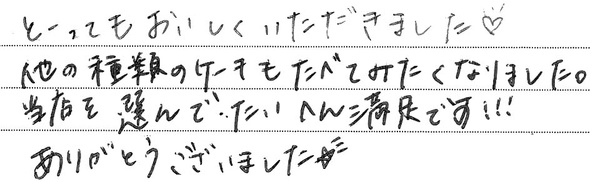 とーってもおいしくいただきました♡
他の種類のケーキもたべてみたくなりました。
当店を選んでたいへん満足です!!!
ありがとうございました☆